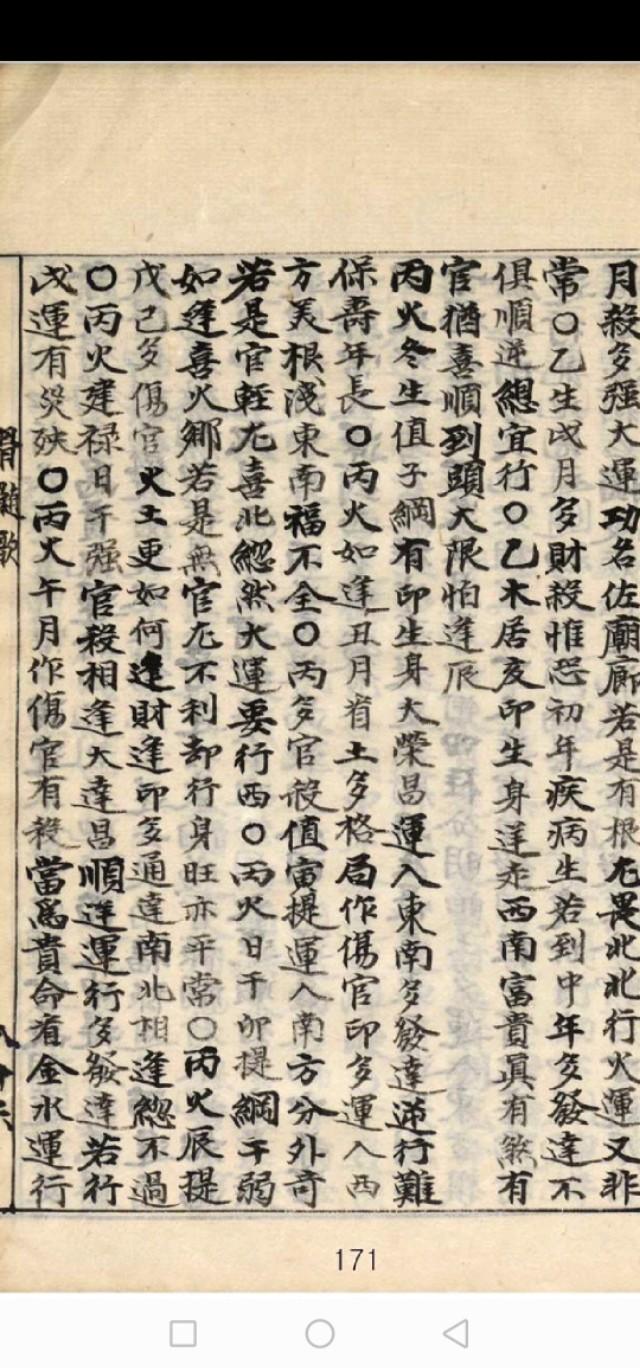 月殺多强大運功名佐廟廊若是有根尤畏北北行火運又非
常〇乙生戌月多財殺惟恐初年疾病生若到中年多發達不
俱順逆總宜行〇乙木居亥印生身運走西南富貴真有煞有
官猶喜順到頭大限怕逢辰
丙火冬生值子綱有印生身大榮昌運入東南多發達逆行難
保壽年長〇丙火如逢丑月省土多格局作傷官印多運入西
方美根淺東南福不全〇丙多官殺值寅提運入南方分外奇
若是官輕尤喜北縂然大運要行西〇丙火日干卯提綱干弱
如逢喜火鄉若是無官尤不利却行身旺亦平常〇丙火辰提
戊己多傷官火土更如何逢財逢印多通達南北相逢總不過
〇丙火建禄日干强官殺相逢大達昌順逆運行多發達若行
戌運有災殃〇丙火午月作傷官有殺當爲貴命看金水運行
髓歌
171